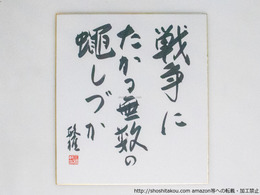 戦争に
たかる無数の
蠅しづか
http://shoshitakou.com amazon等への転載・加工禁止